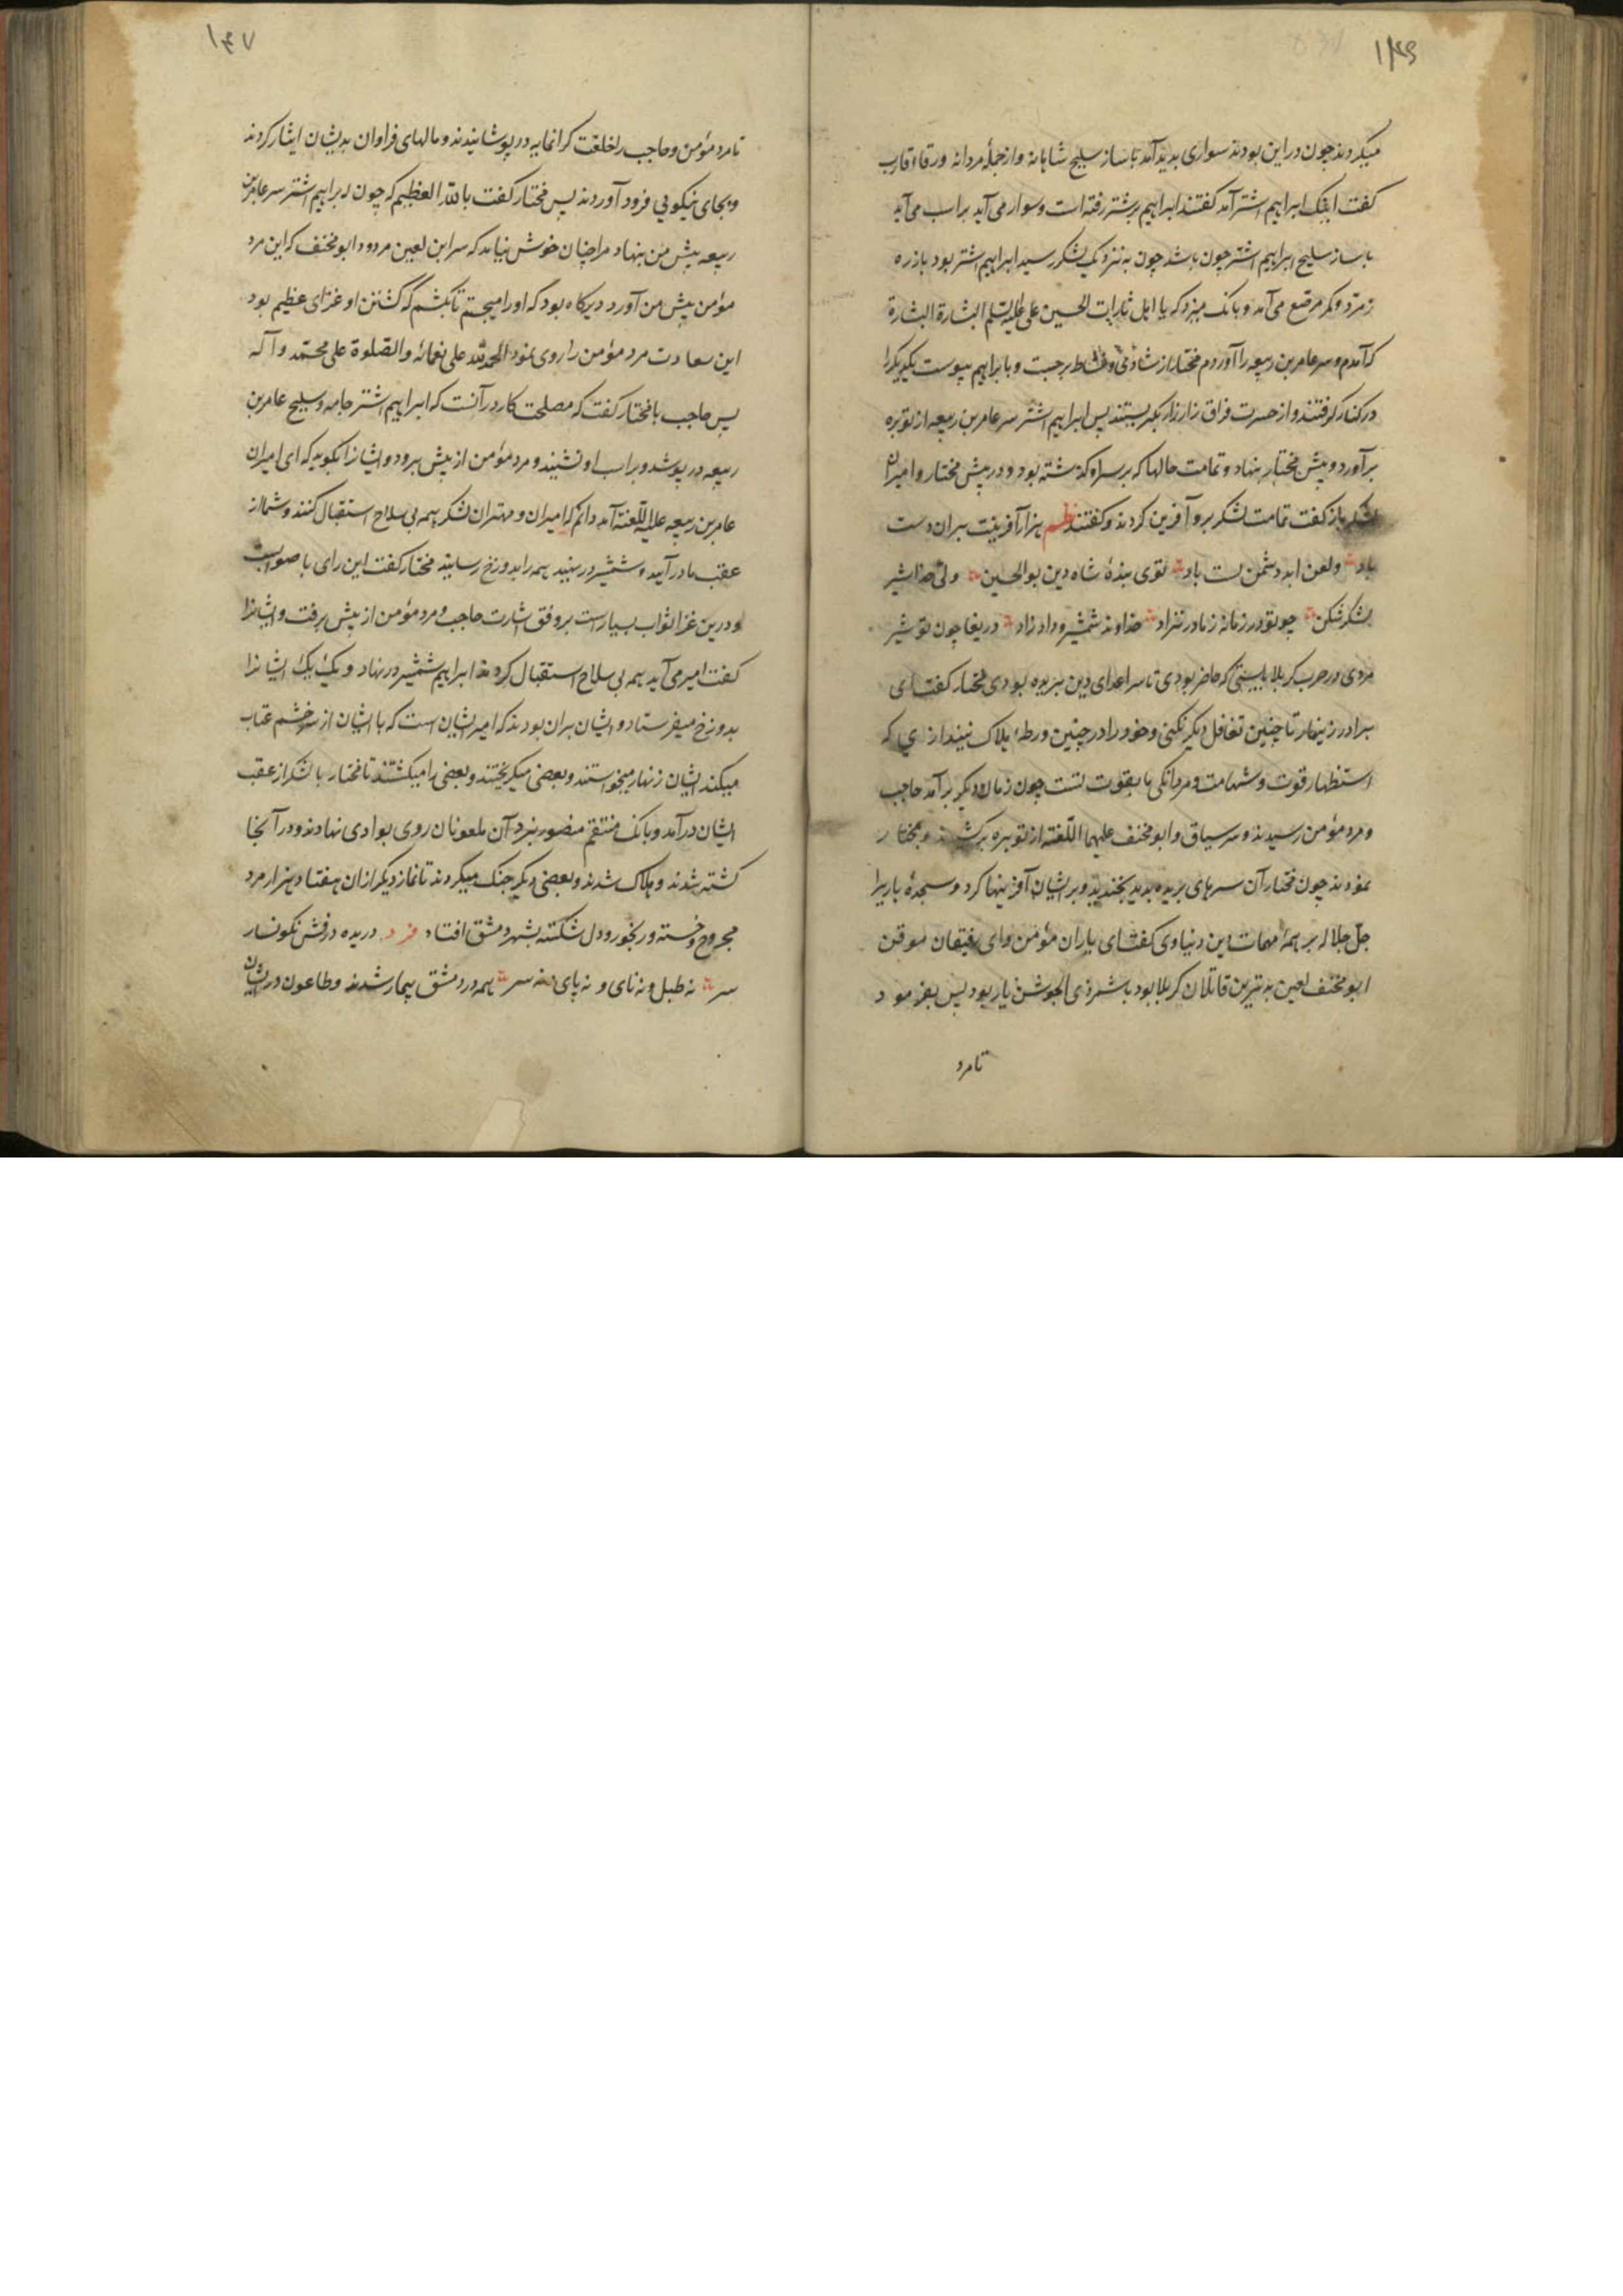 ۱۴۶
میکردند چون در این بودند سواری بدید آمد با ساز سلیح شاهانه و از جملهٔ مردانه ورقاء اقارب
کفت اینک ابراهیم اشتر آمد کفتند ابراهیم بر شتر رفته است و سوار می آید بر اسب می آید
با ساز سلیح ابراهیم اشتر چون باشد چون به نزدیک لشکر رسید ابراهیم اشتر بود با زره
زمرد و کمر مرصع می آمد و بانک میزد که یا اهل ثارات الحسین علی علیه السلم البشارة البشارة
که آمدم و سر عامر بن ربیعه را آوردم مختار از شادی و نشاط برجست و با ابراهیم پیوست یکدیکر را
در کنار کرفتند و از حسرت فراق زار زار بکریستند پس ابراهیم اشتر سر عامر بن ربیعه از توبره
برآورد و پیش مختار بنهاد و تمامت حالها که بر سر او کذشته بود در پیش مختار و امیران
لشکر باز کفت تمامت لشکر برو آفرین کردند و کفتند نظم هزار آفرینت بران دست
باد ولعن ابد دشمن تست باد توی بندهٔ شاه دین بوالحسن ولی خدا شیر
لشکر شکن چو تو در زمانه ز مادر نزاد خداوند شمشیر و داد زاد دریغا چون تو شیر
مردی در حرب کربلا بایستی که حاضر بودی تا سر اعدای دین بریده بودی مختار کفت ای
برادر زینهار تا چنین تغافل دیکر نکنی و خود را در چنین ورطهٔ هلاک نیندازی که
استظهار قوت و شهامت و مردانکی ما بقوت تست چون زمان دیکر برآمد حاجب
و مرد مؤمن رسیدند و سر سیاق و ابو مخنف علیهما اللعنه از توبره برکشیدند و بمختار
نمودند چون مختار آن سرهای بریده بدید بخندید و بر ایشان آفرینها کرد و سجدهٔ باری را
جل جلاله بر همهٔ مهمات این دنیاوی کفت ای یاران مؤمن و ای رفیقان موقن
ابو مخنف لعین بدترین قاتلان کربلا بود با شمر ذی الجوشن یار بود پس بفرمود
تا مرد
۱۴۷
تا مرد مؤمن و حاجب را خلعت کرانمایه در پوشانیدند و مالهای فراوان بدیشان ایثار کردند
و بجای نیکویی فرود آوردند پس مختار کفت بالله العظیم که چون ابراهیم اشتر سر عامر بن
ربیعه پیش من بنهاد مرا چنان خوش نیامد که سر این لعین مردود ابو مخنف که این مرد
مؤمن پیش من آورد دیرکاه بود که او را میجستم تا بکشم که کشتن او غزای عظیم بود
این سعادت مرد مؤمن را روی نمود الحمد لله علی نعمائه والصلوة علی محمد و آله
پس حاجب با مختار کفت که مصلحت کار در آنست که ابراهیم اشتر جامه و سلیح عامر بن
ربیعه در پوشد و بر اسب او نشیند و مرد مؤمن از پیش برود و ایشانرا بکوید که ای امیران
عامر بن ربیعه علیه اللعنه آمد دانم که امیران و مهتران لشکر همه بی سلاح استقبال کنند و شما از
عقب ما درآیید و شمشیر در نهید همه را بدوزخ رسانید مختار کفت این رای با صوابست
و درین غزا ثواب بسیارست بر وفق اشارت حاجب و مرد مؤمن از پیش برفت و ایشانرا
کفت امیر می آید همه بی سلاح استقبال کردند ابراهیم شمشیر در نهاد و یک یک ایشانرا
بدوزخ میفرستاد و ایشان بران بودند که امیر ایشان است که با ایشان از سر خشم عتاب
میکند ایشان زنهار میخواستند و بعضی میکریختند و بعضی را میکشتند تا مختار با لشکر از عقب
ایشان درآمد و بانک منتقم منصور بزد آن ملعونان روی بوادی نهادند و در آنجا
کشته شدند و هلاک شدند و بعضی دیکر جنک میکردند تا نماز دیکر از ان هفتاد هزار مرد
مجروح و خسته و رنجور و دل شکسته بشهر دمشق افتاد فرد دریده درفش نکونسار
سر نه طبل و نه نای و نه پای نه سر همه در دمشق بیمار شدند و طاعون در ایشان